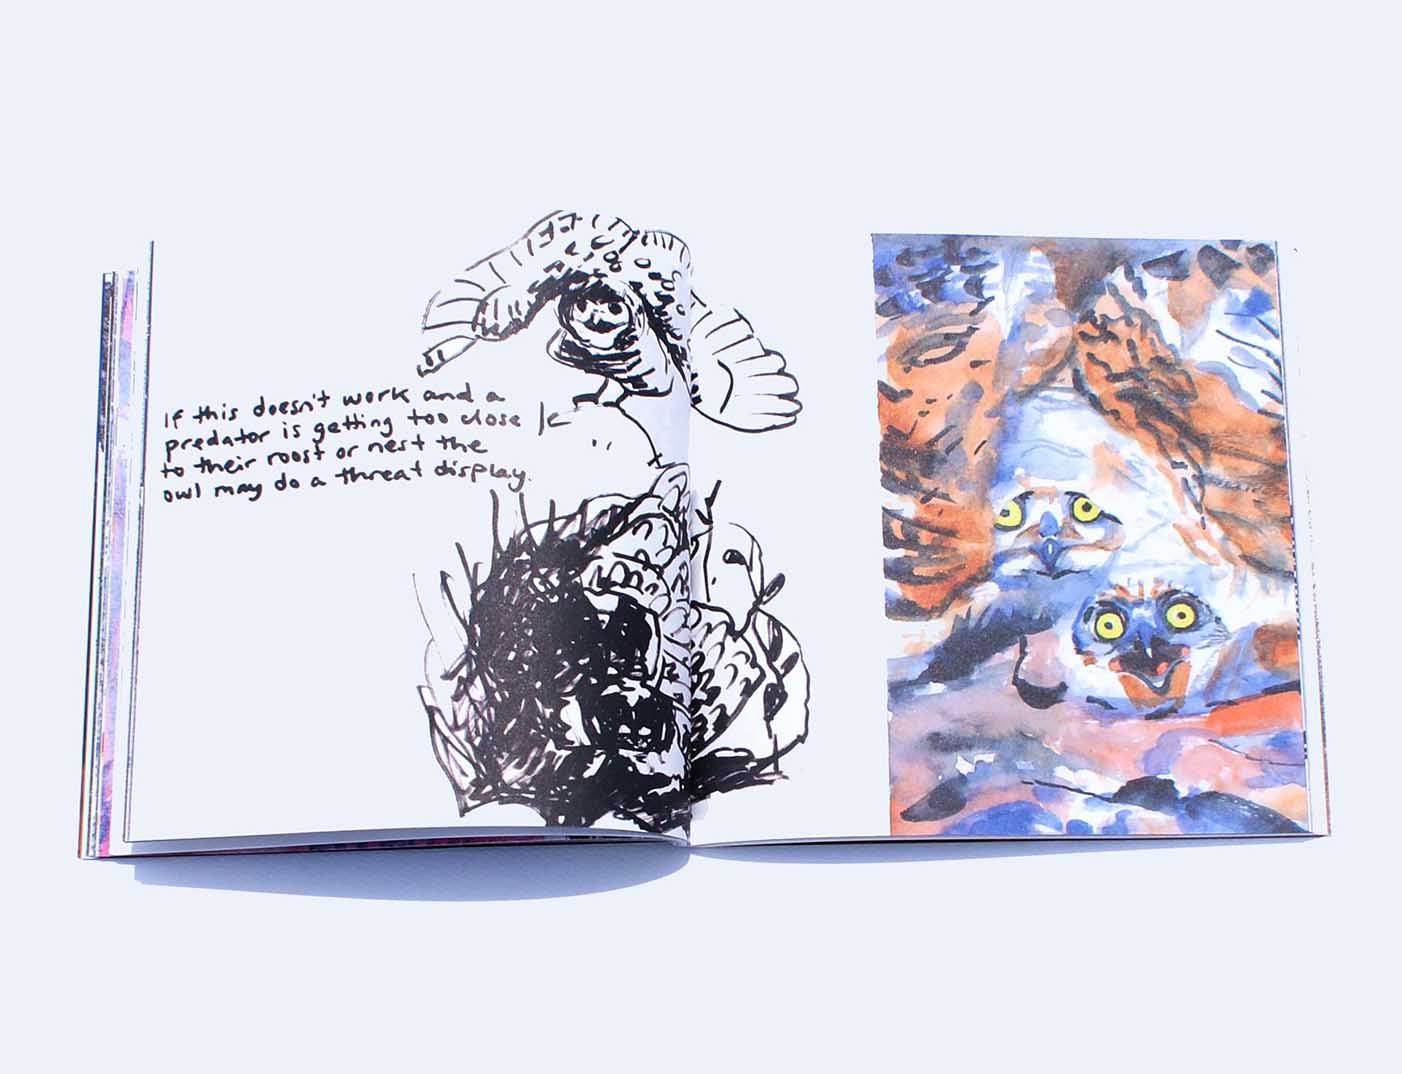 If this doesn't work and a
predator is getting too close
to their roost or nest the
owl may do a threat display.